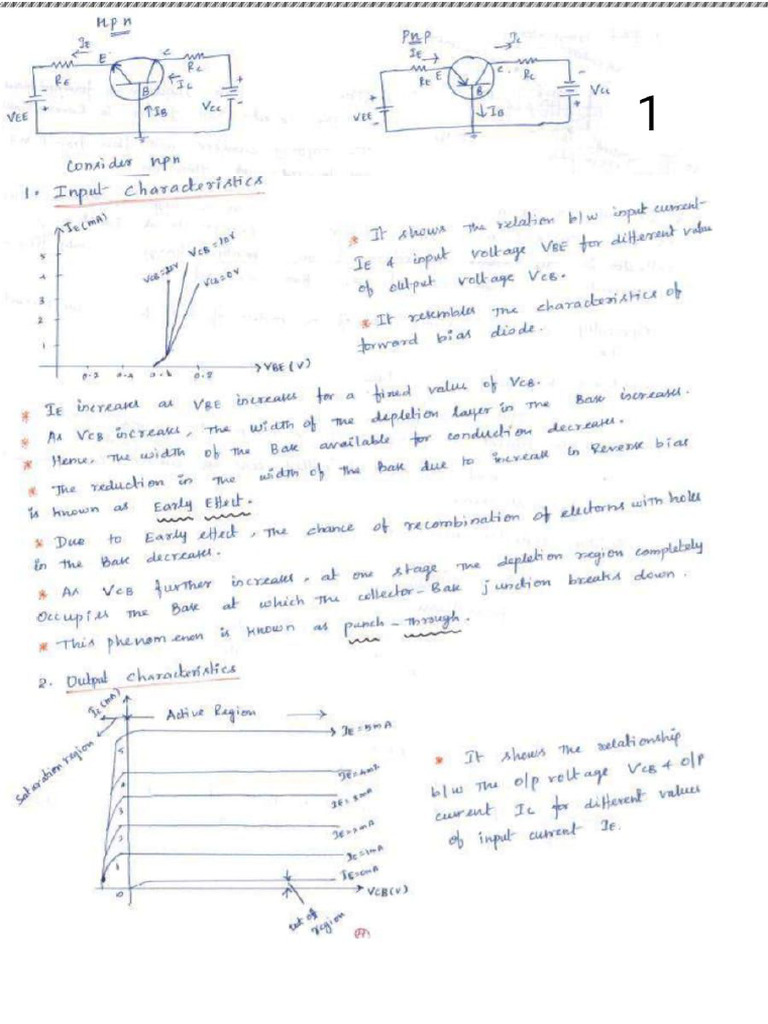 npn
pnp
IE
E
C
RE
RC
IC
B
IB
VEE
VCC
IE
IC
RE
E
C
RC
B
IB
VEE
VCC
1
Consider npn
1. Input Characteristics
IE(mA)
VCB=10V
VCB=0V
5
4
3
2
1
0.2 0.4 0.6 0.8
VBE(V)
* It shows the relation b/w input current
IE & input voltage VBE for different value
of output voltage VCB.
* It resembles the characteristics of
forward bias diode.
* IE increases as VBE increases for a fixed value of VCB.
* As VCB increases, the width of the depletion layer in the Base increases.
* Hence, the width of the Base available for conduction decreases.
* The reduction in the width of the Base due to increase in Reverse bias
is known as Early Effect.
* Due to Early effect, the chance of recombination of electorns with holes
in the Base decreases.
* As VCB further increases, at one stage the depletion region completely
occupies the Base at which the collector-Base junction breaks down.
* This phenomenon is known as punch-through.
2. Output characteristics
IC(mA)
Active Region
Saturation region
IE=5mA
IE=4mA
IE=3mA
IE=2mA
IE=1mA
IE=0mA
5
4
3
2
1
0
VCB(V)
cut of
region
* It shows the relationship
b/w the o/p voltage VCB & o/p
current IC for different values
of input current IE.